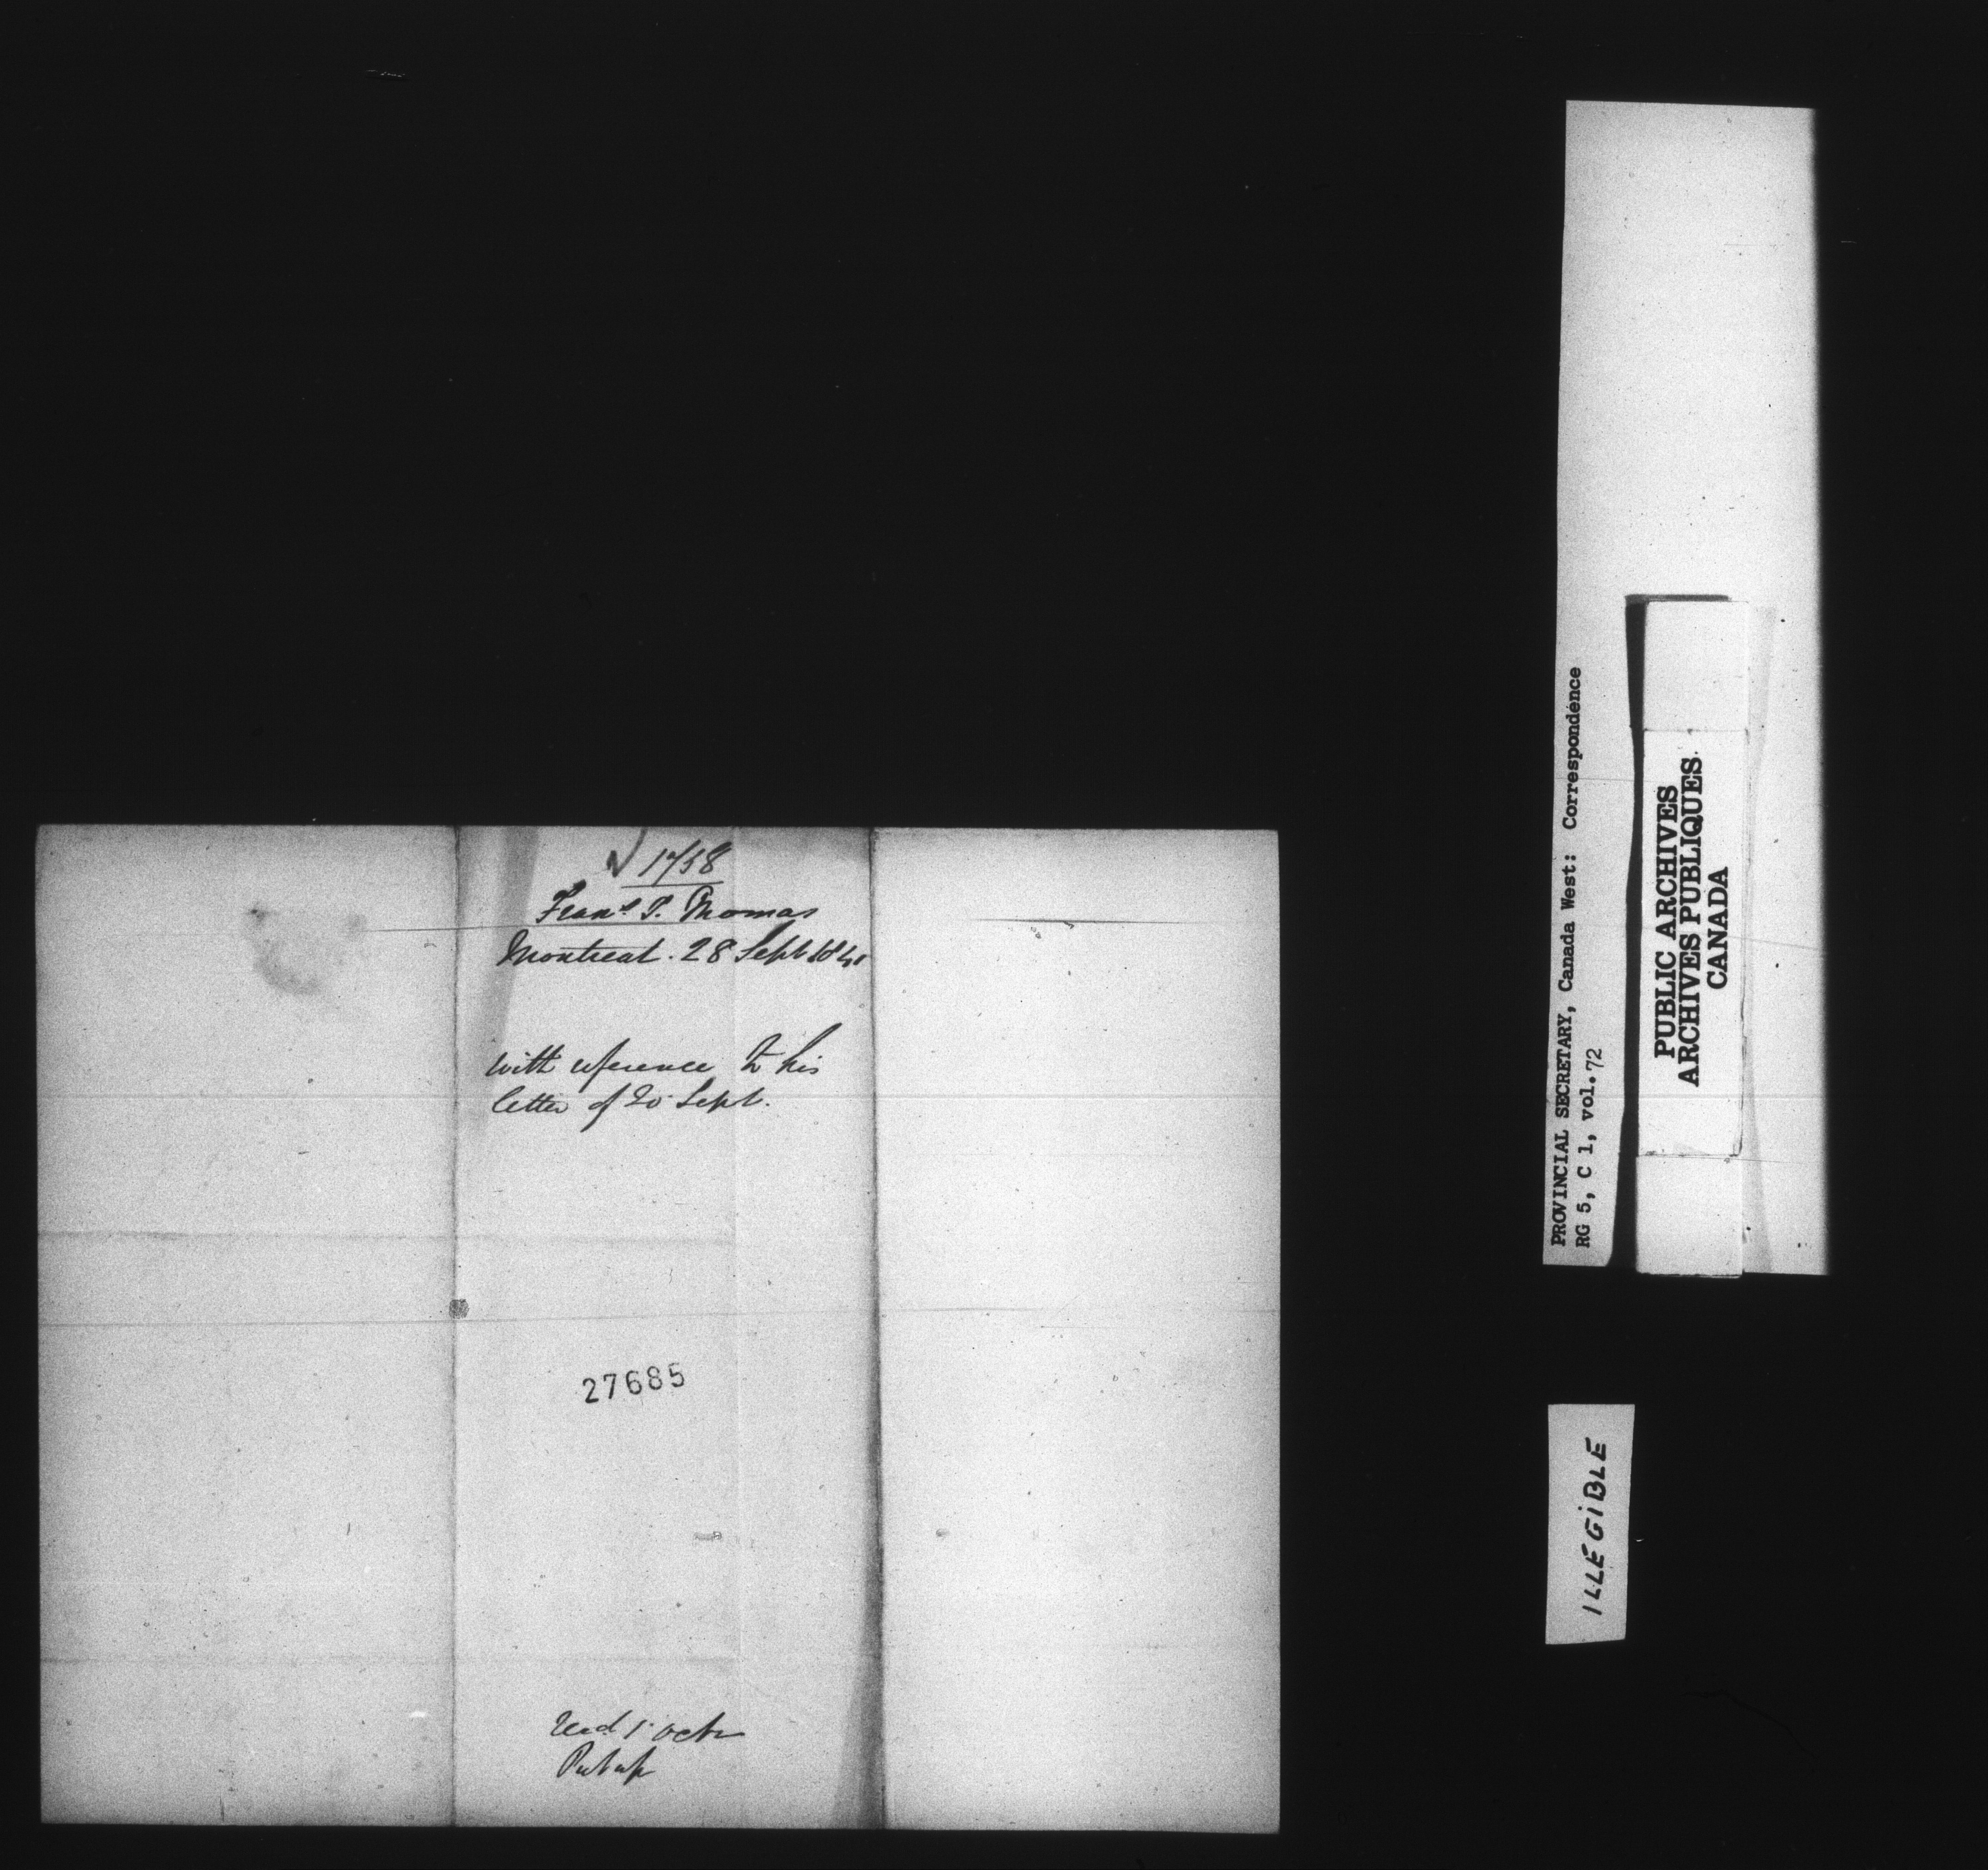 1758
Frans. P. Thomas
Montreal. 28 Sept 1841
with reference to his
letter of 20 Sept.
27685
Recd 1 Octr
Put up
PROVINCIAL SECRETARY, Canada West: Correspondence
RG 5, C 1, vol. 72
PUBLIC ARCHIVES
ARCHIVES PUBLIQUES
CANADA
ILLEGIBLE